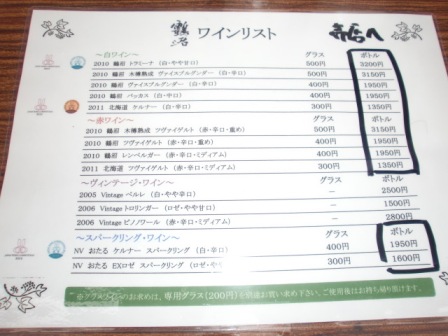 鶴沼 ワインリスト
～白ワイン～ グラス ボトル
2010 鶴沼 トラミーナ (白・やや甘口) 500円 3200円
2010 鶴沼 木樽熟成 ヴァイスブルグンダー (白・辛口) 500円 3150円
2010 鶴沼 ヴァイスブルグンダー (白・辛口) 400円 1950円
2010 鶴沼 バッカス (白・中口) 400円 1950円
2011 北海道 ケルナー (白・辛口) 300円 1350円
～赤ワイン～ グラス ボトル
2010 鶴沼 木樽熟成 ツヴァイゲルト (赤・辛口・重め) 500円 3150円
2010 鶴沼 ツヴァイゲルト (赤・辛口・重め) 400円 1950円
2010 鶴沼 レンベルガー (赤・辛口・ミディアム) 400円 1950円
2011 北海道 ツヴァイゲルト (赤・辛口・ミディアム) 300円 1350円
～ヴィンテージ・ワイン～ グラス ボトル
2005 Vintage ペルレ (白・やや甘口) － 2500円
2006 Vintage トロリンガー (ロゼ・やや甘口) － 1500円
2006 Vintage ピノノワール (赤・辛口・ミディアム) － 2800円
～スパークリング・ワイン～ グラス ボトル
NV おたる ケルナー スパークリング (白・辛口) 400円 1950円
NV おたる EXロゼ スパークリング (ロゼ・やや 300円 1600円
※グラスワインのお求めは、専用グラス(200円)を別途お買い求め下さい。ご使用後はお持ち帰り頂けます。